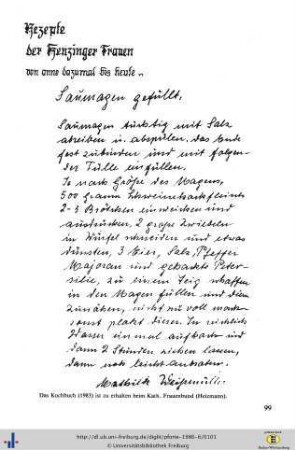 Rezepte
der Kenzinger Frauen
von anno dazumal bis heute ..
Saumagen gefüllt.
Saumagen tüchtig mit Salz
abreiben u. abspülen. das Ende
fest zubinden und mit folgen-
der Fülle einfüllen.
Je nach Größe des Magens,
500 gramm Schweinehackfleisch
2-3 Brötchen einweichen und
ausdrücken, 2 große Zwiebeln
in Würfel schneiden und etwas
dünsten, 3 Eier, Salz, Pfeffer
Majoran und gehackte Peter-
silie, zu einem Teig schaffen
in den Magen füllen und dann
zunähen, nicht zu voll machen
sonst platzt dieser. In reichlich
Wasser einmal aufkochen und
dann 2 Stunden ziehen lassen,
dann noch leicht anbraten.
Das Kochbuch (1983) ist zu erhalten beim Kath. Frauenbund (Heizmann).
99
http://dl.ub.uni-freiburg.de/diglit/pforte-1986-6/0101
© Universitätsbibliothek Freiburg